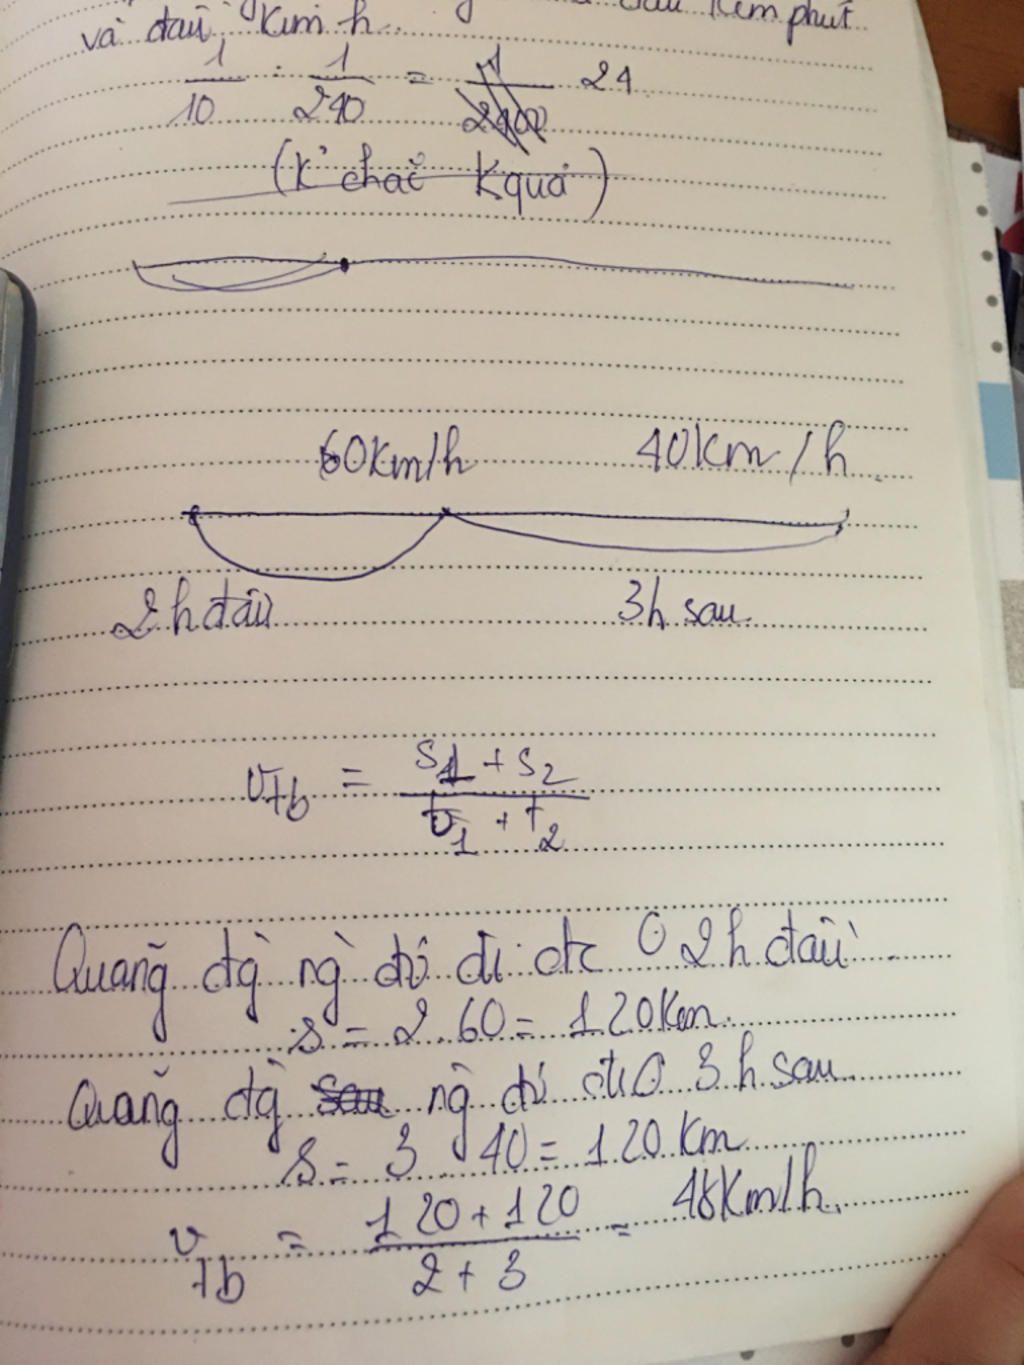 và đầu kim h. đầu kim phút
1/10 : 1/240 = 24
(K° chắc Kquả)
60km/h 40km/h
2h đầu 3h sau
v_tb = (s_1 + s_2)/(t_1 + t_2)
Quãng đg ng đó đi đc 2h đầu
s = 2.60 = 120km.
Quãng đg ng đó 3h sau
s = 3 40 = 120 km
v_tb = (120 + 120)/(2 + 3) = 48km/h.